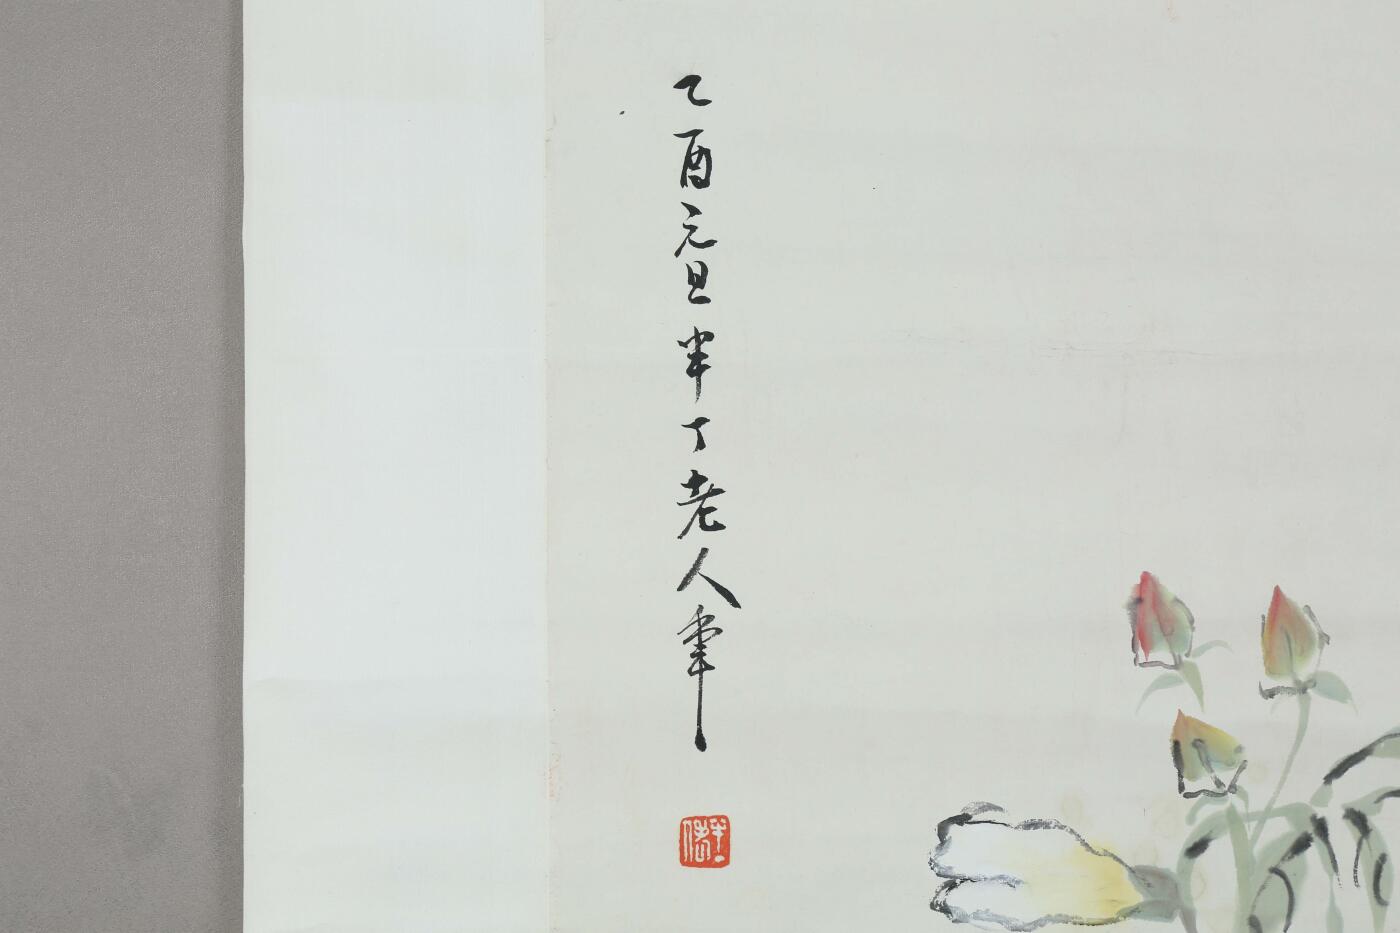 乙酉元旦半丁老人筆